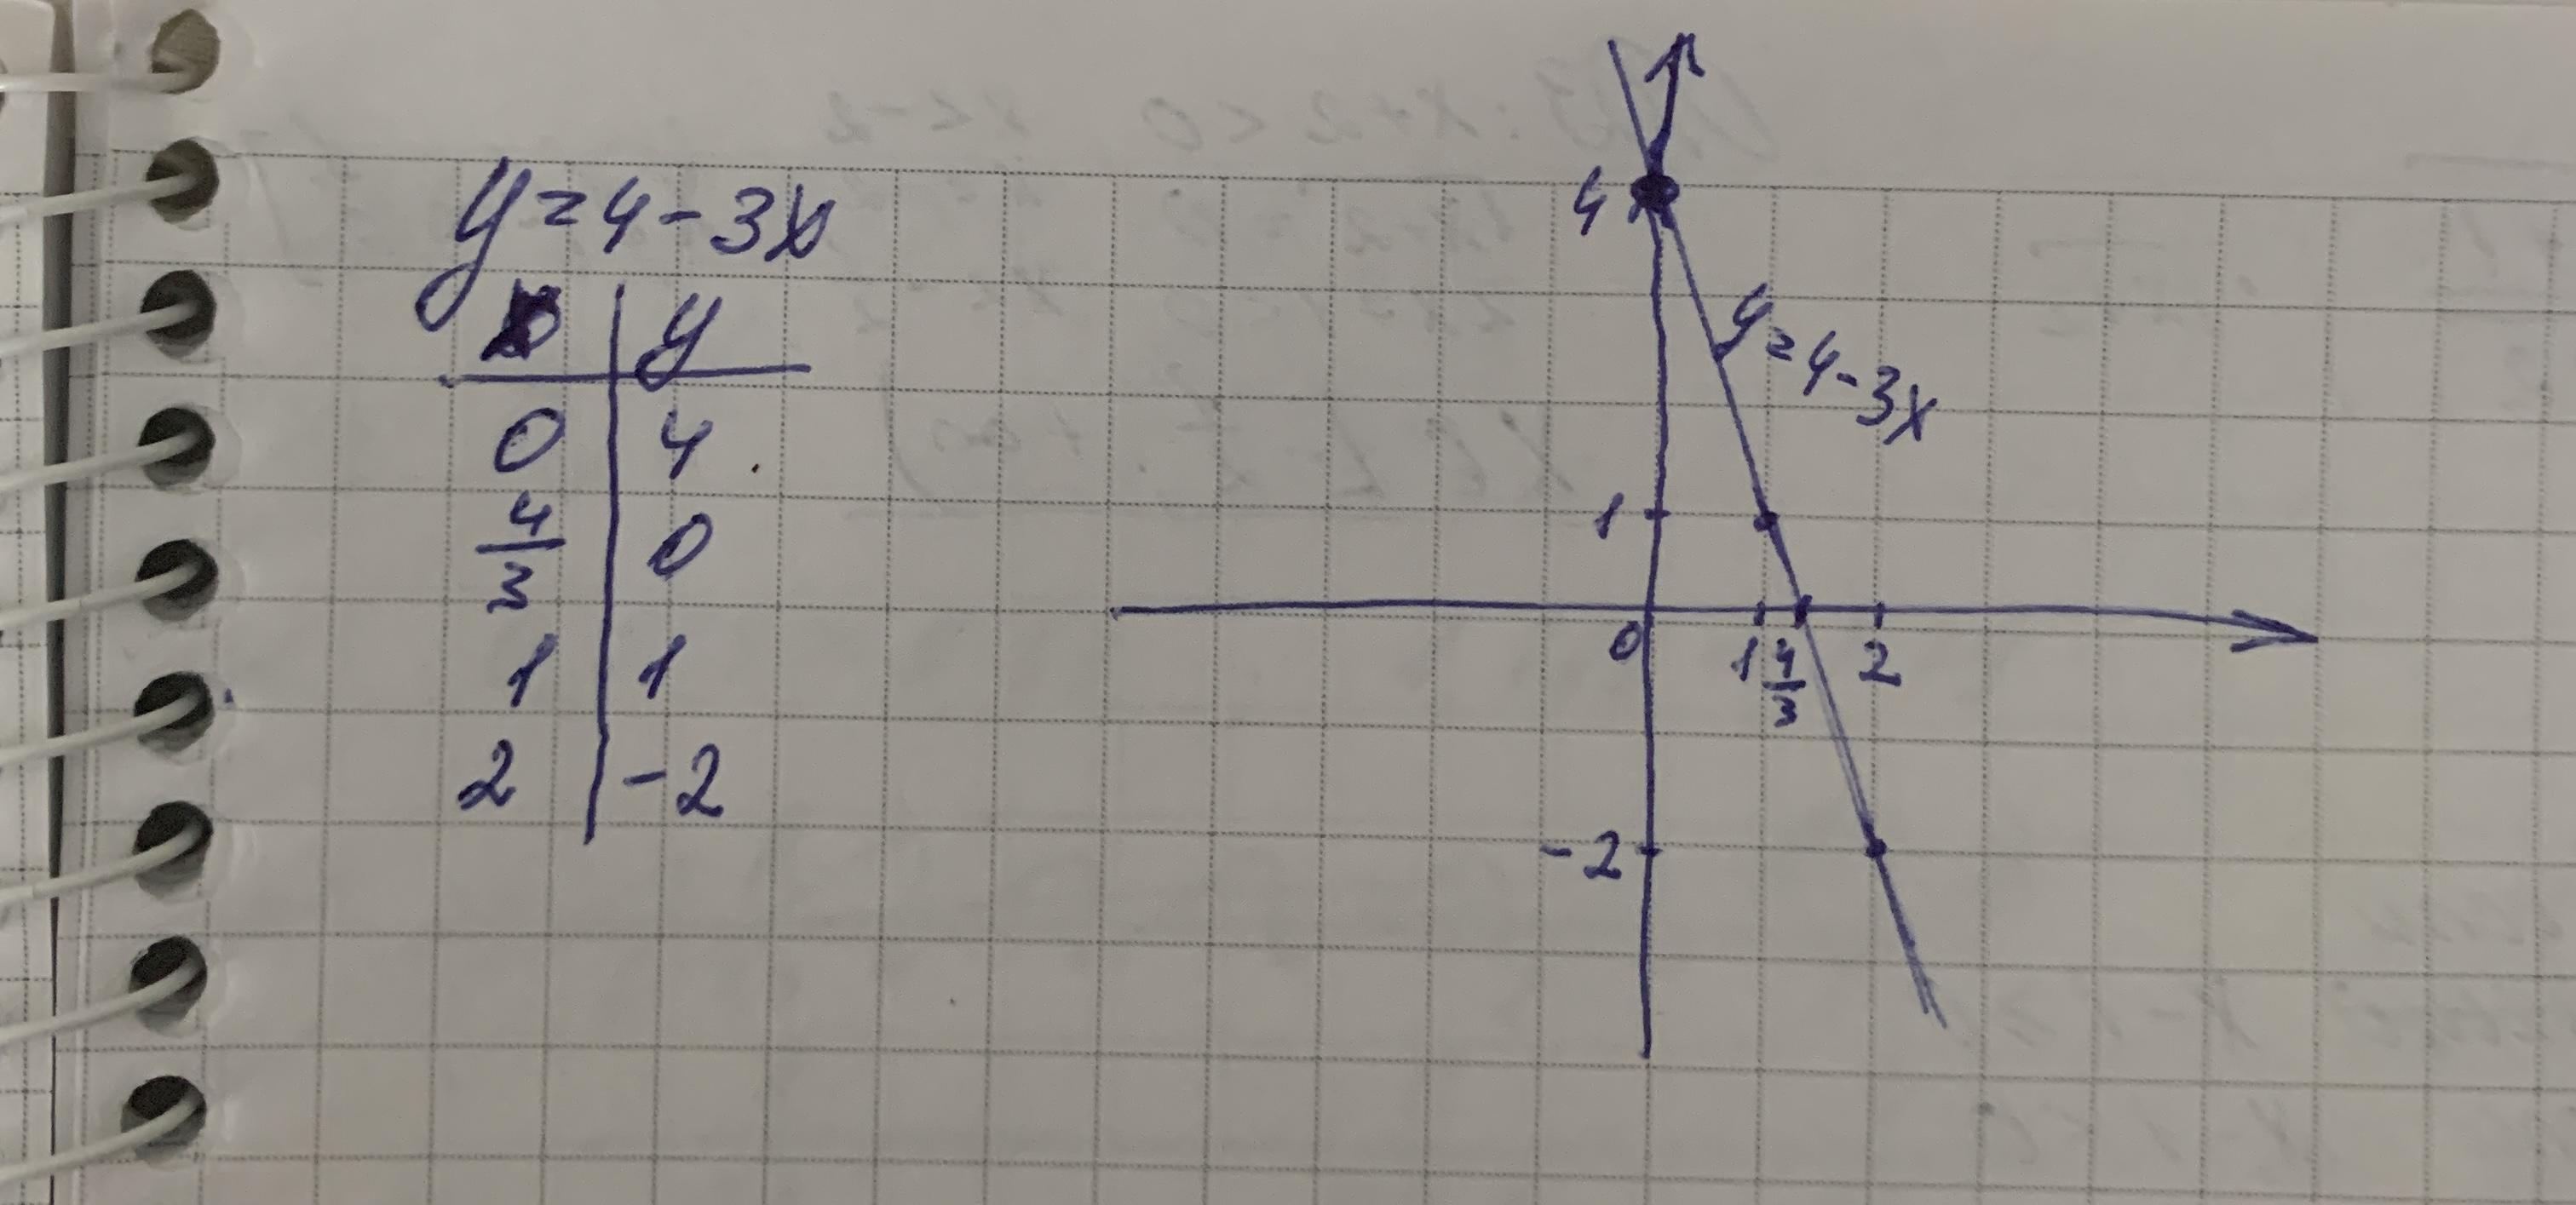 y=4-3x
x y
0 4
4/3 0
1 1
2 -2
4
y=4-3x
1
0 1 4/3 2
-2